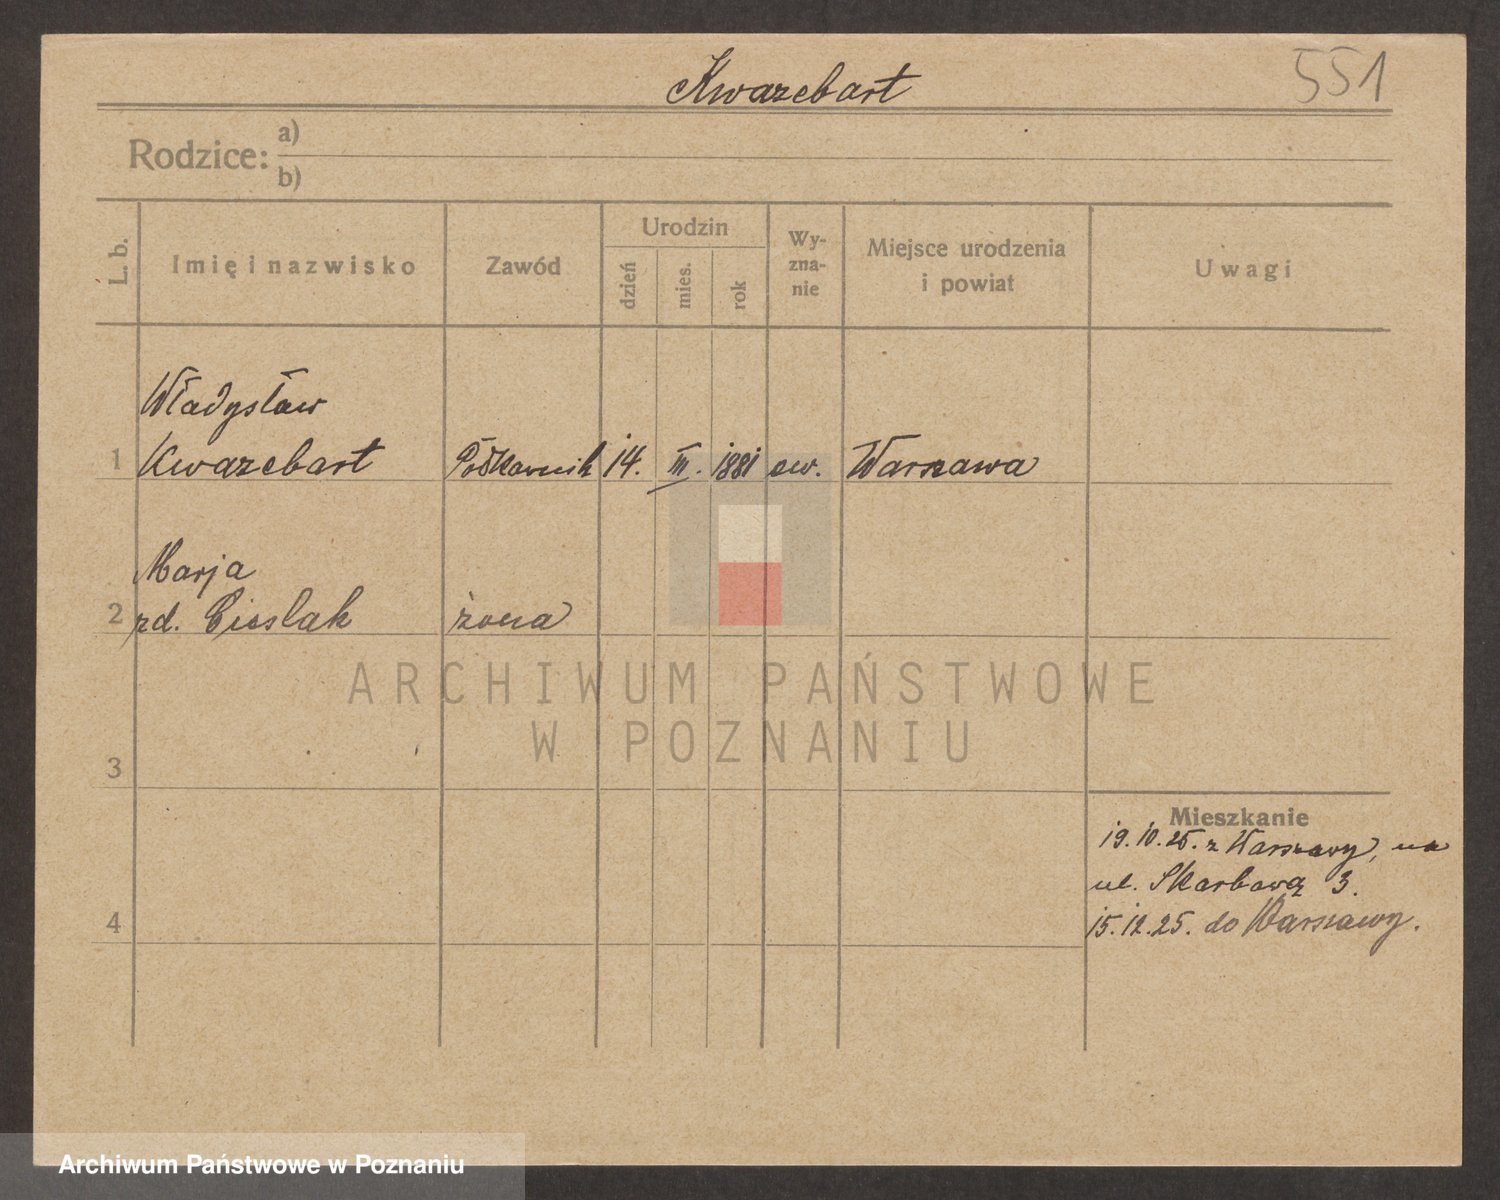 Kwarcebart
551
Rodzice:
a)
b)
L. b.
Imię i nazwisko
Zawód
Urodzin
dzień
mies.
rok
Wy-
zna-
nie
Miejsce urodzenia
i powiat
Uwagi
Władysław
1 Kwarcebart 14. III. 1881 ew. Warszawa
Marja
2 zd. Cieslak żona
3
4
Mieszkanie
19.10.25. z Warszawy, na
ul. Skarbową 3.
15.12.25. do Warszawy.
ARCHIWUM PAŃSTWOWE
W POZNANIU
Archiwum Państwowe w Poznaniu